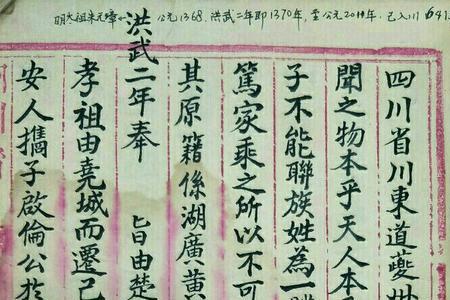 明太祖朱元璋 公元1368. 洪武二年即1370年, 至公元2011年. 已入川641
四川省川東道夔州
聞之物本乎天人本
子不能聯族姓為一
篤家乘之所以不可
其原籍係湖廣黃
洪武二年奉 旨由楚
孝祖由堯城而遷已
安人攜子啟倫公於